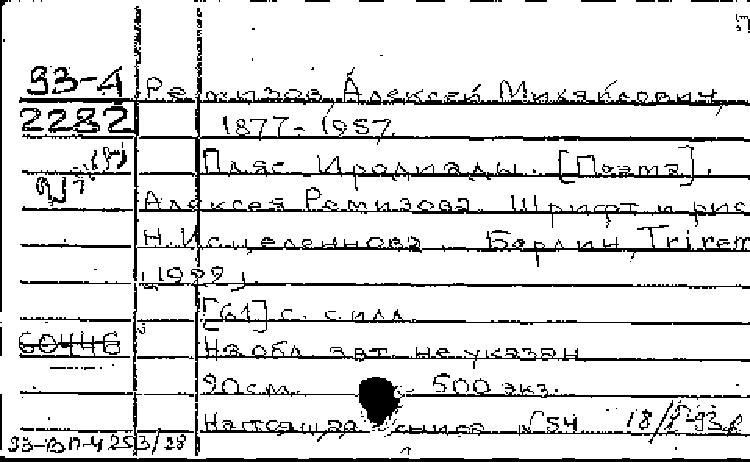 93-4 Ремизов, Алексей Михайлович,
2282 1877-1957.
Пляс Иродиады. [Поэма].
Алексея Ремизова. Шрифт и рис
Н. Исцеленнова. - Берлин, Trirem
[1922].
[61] с. с илл.
60446 На обл. авт. не указан
20 см. - 500 экз.
Настоящая книга №54 18/
93-ВП-4253/28